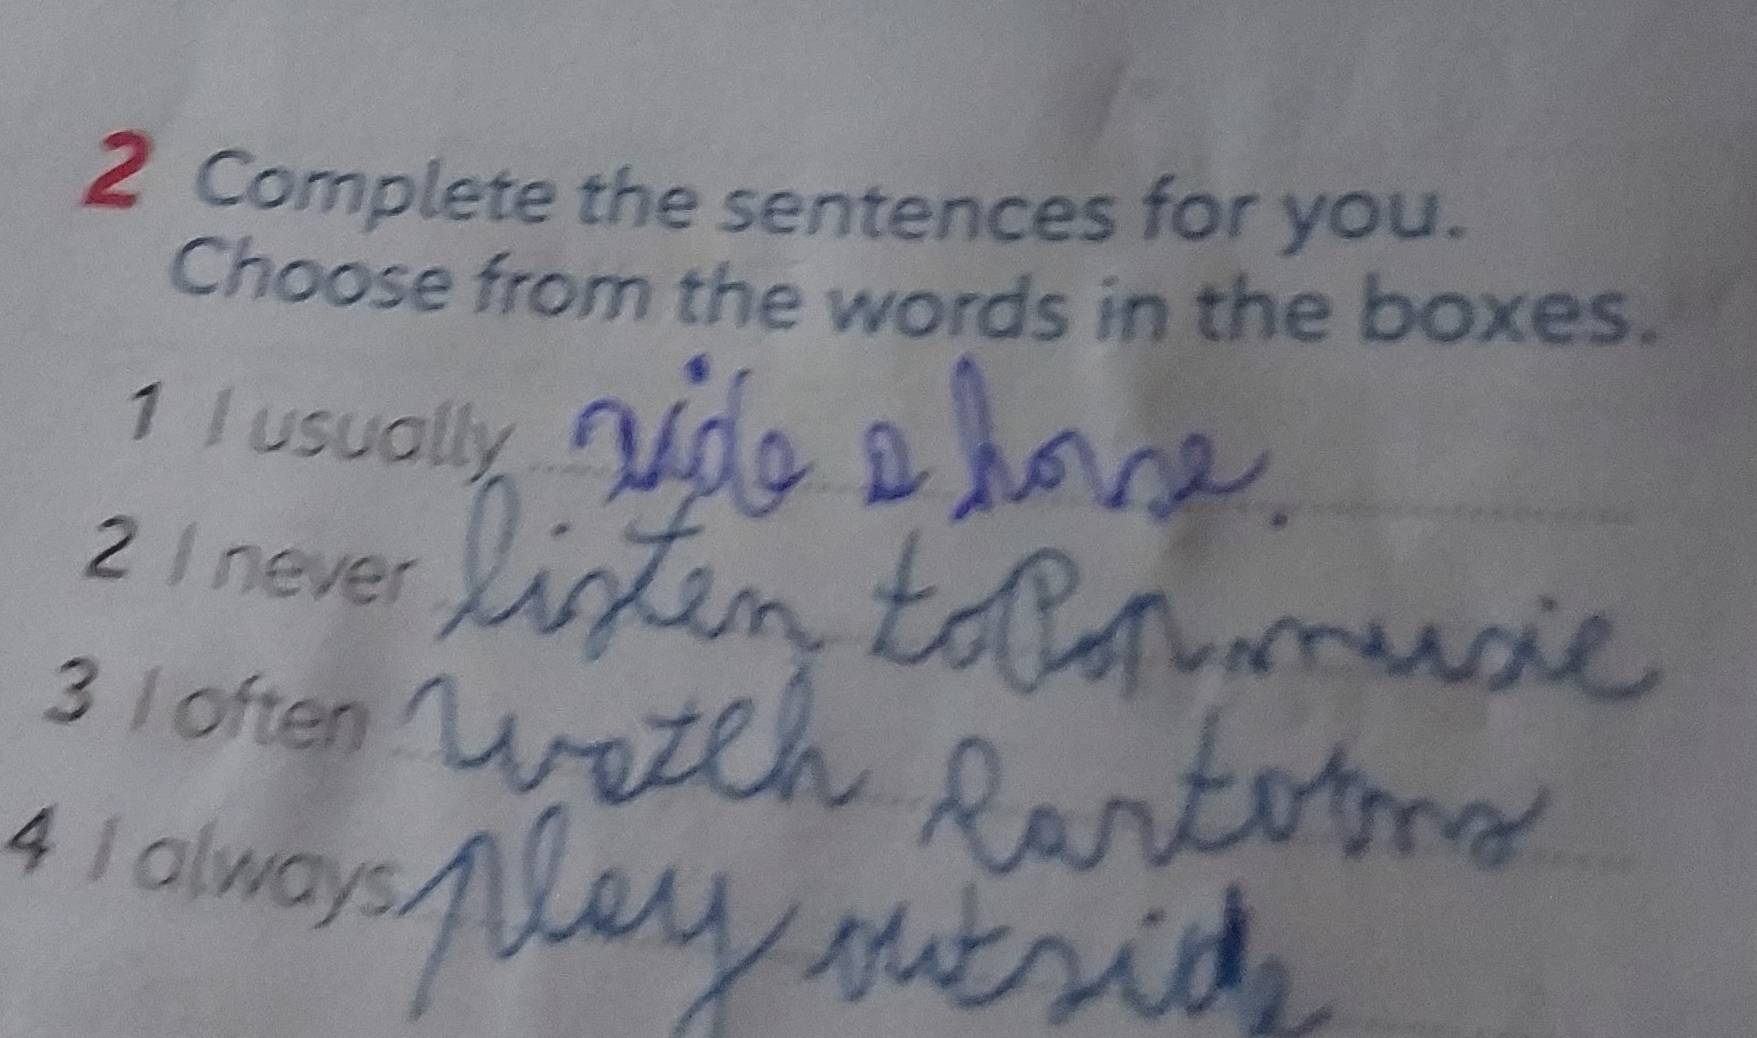 2 Complete the sentences for you.
Choose from the words in the boxes.
1 I usually ride a horse.
2 I never listen to Pop music
3 I often watch cartoons
4 I always play outside